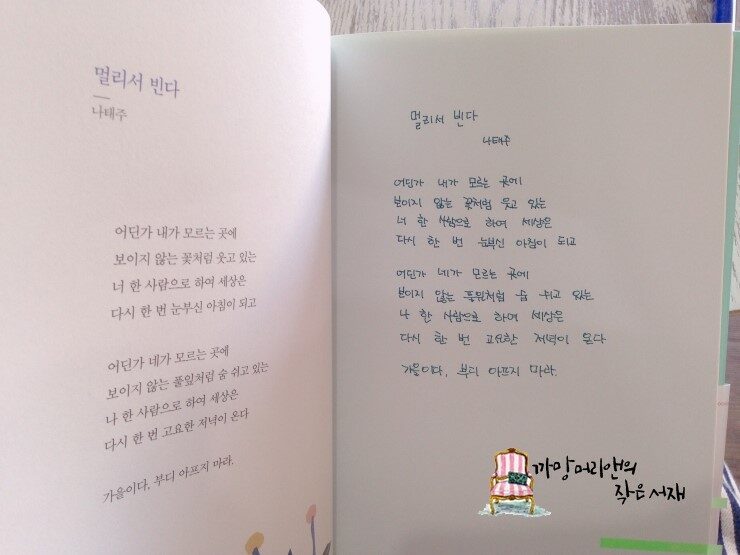 멀리서 빈다
나태주
어딘가 내가 모르는 곳에
보이지 않는 꽃처럼 웃고 있는
너 한 사람으로 하여 세상은
다시 한 번 눈부신 아침이 되고
어딘가 네가 모르는 곳에
보이지 않는 풀잎처럼 숨 쉬고 있는
나 한 사람으로 하여 세상은
다시 한 번 고요한 저녁이 온다
가을이다, 부디 아프지 마라.
멀리서 빈다
나태주
어딘가 내가 모르는 곳에
보이지 않는 꽃처럼 웃고 있는
너 한 사람으로 하여 세상은
다시 한 번 눈부신 아침이 되고
어딘가 네가 모르는 곳에
보이지 않는 풀잎처럼 숨 쉬고 있는
나 한 사람으로 하여 세상은
다시 한 번 고요한 저녁이 온다
가을이다, 부디 아프지 마라.
까망머리앤의
작은서재